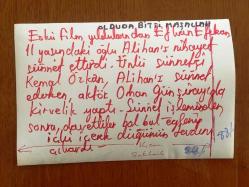 OLDUDA, BİTTİ MAŞALLAH
Eski film yıldızlarından Eşhan Efekan
11 yaşındaki oğlu Alihan'ı nihayet
sünnet ettirdi. Ünlü sünnetçi
Kemal Özkan, Alihan'ı sünnet
ederken, aktör Orhan Günşiray'da
kirvelik yaptı. Sünnet işleminden
sonra davetliler bol bol eğlenip
içki içerek düğünün
çıkardı